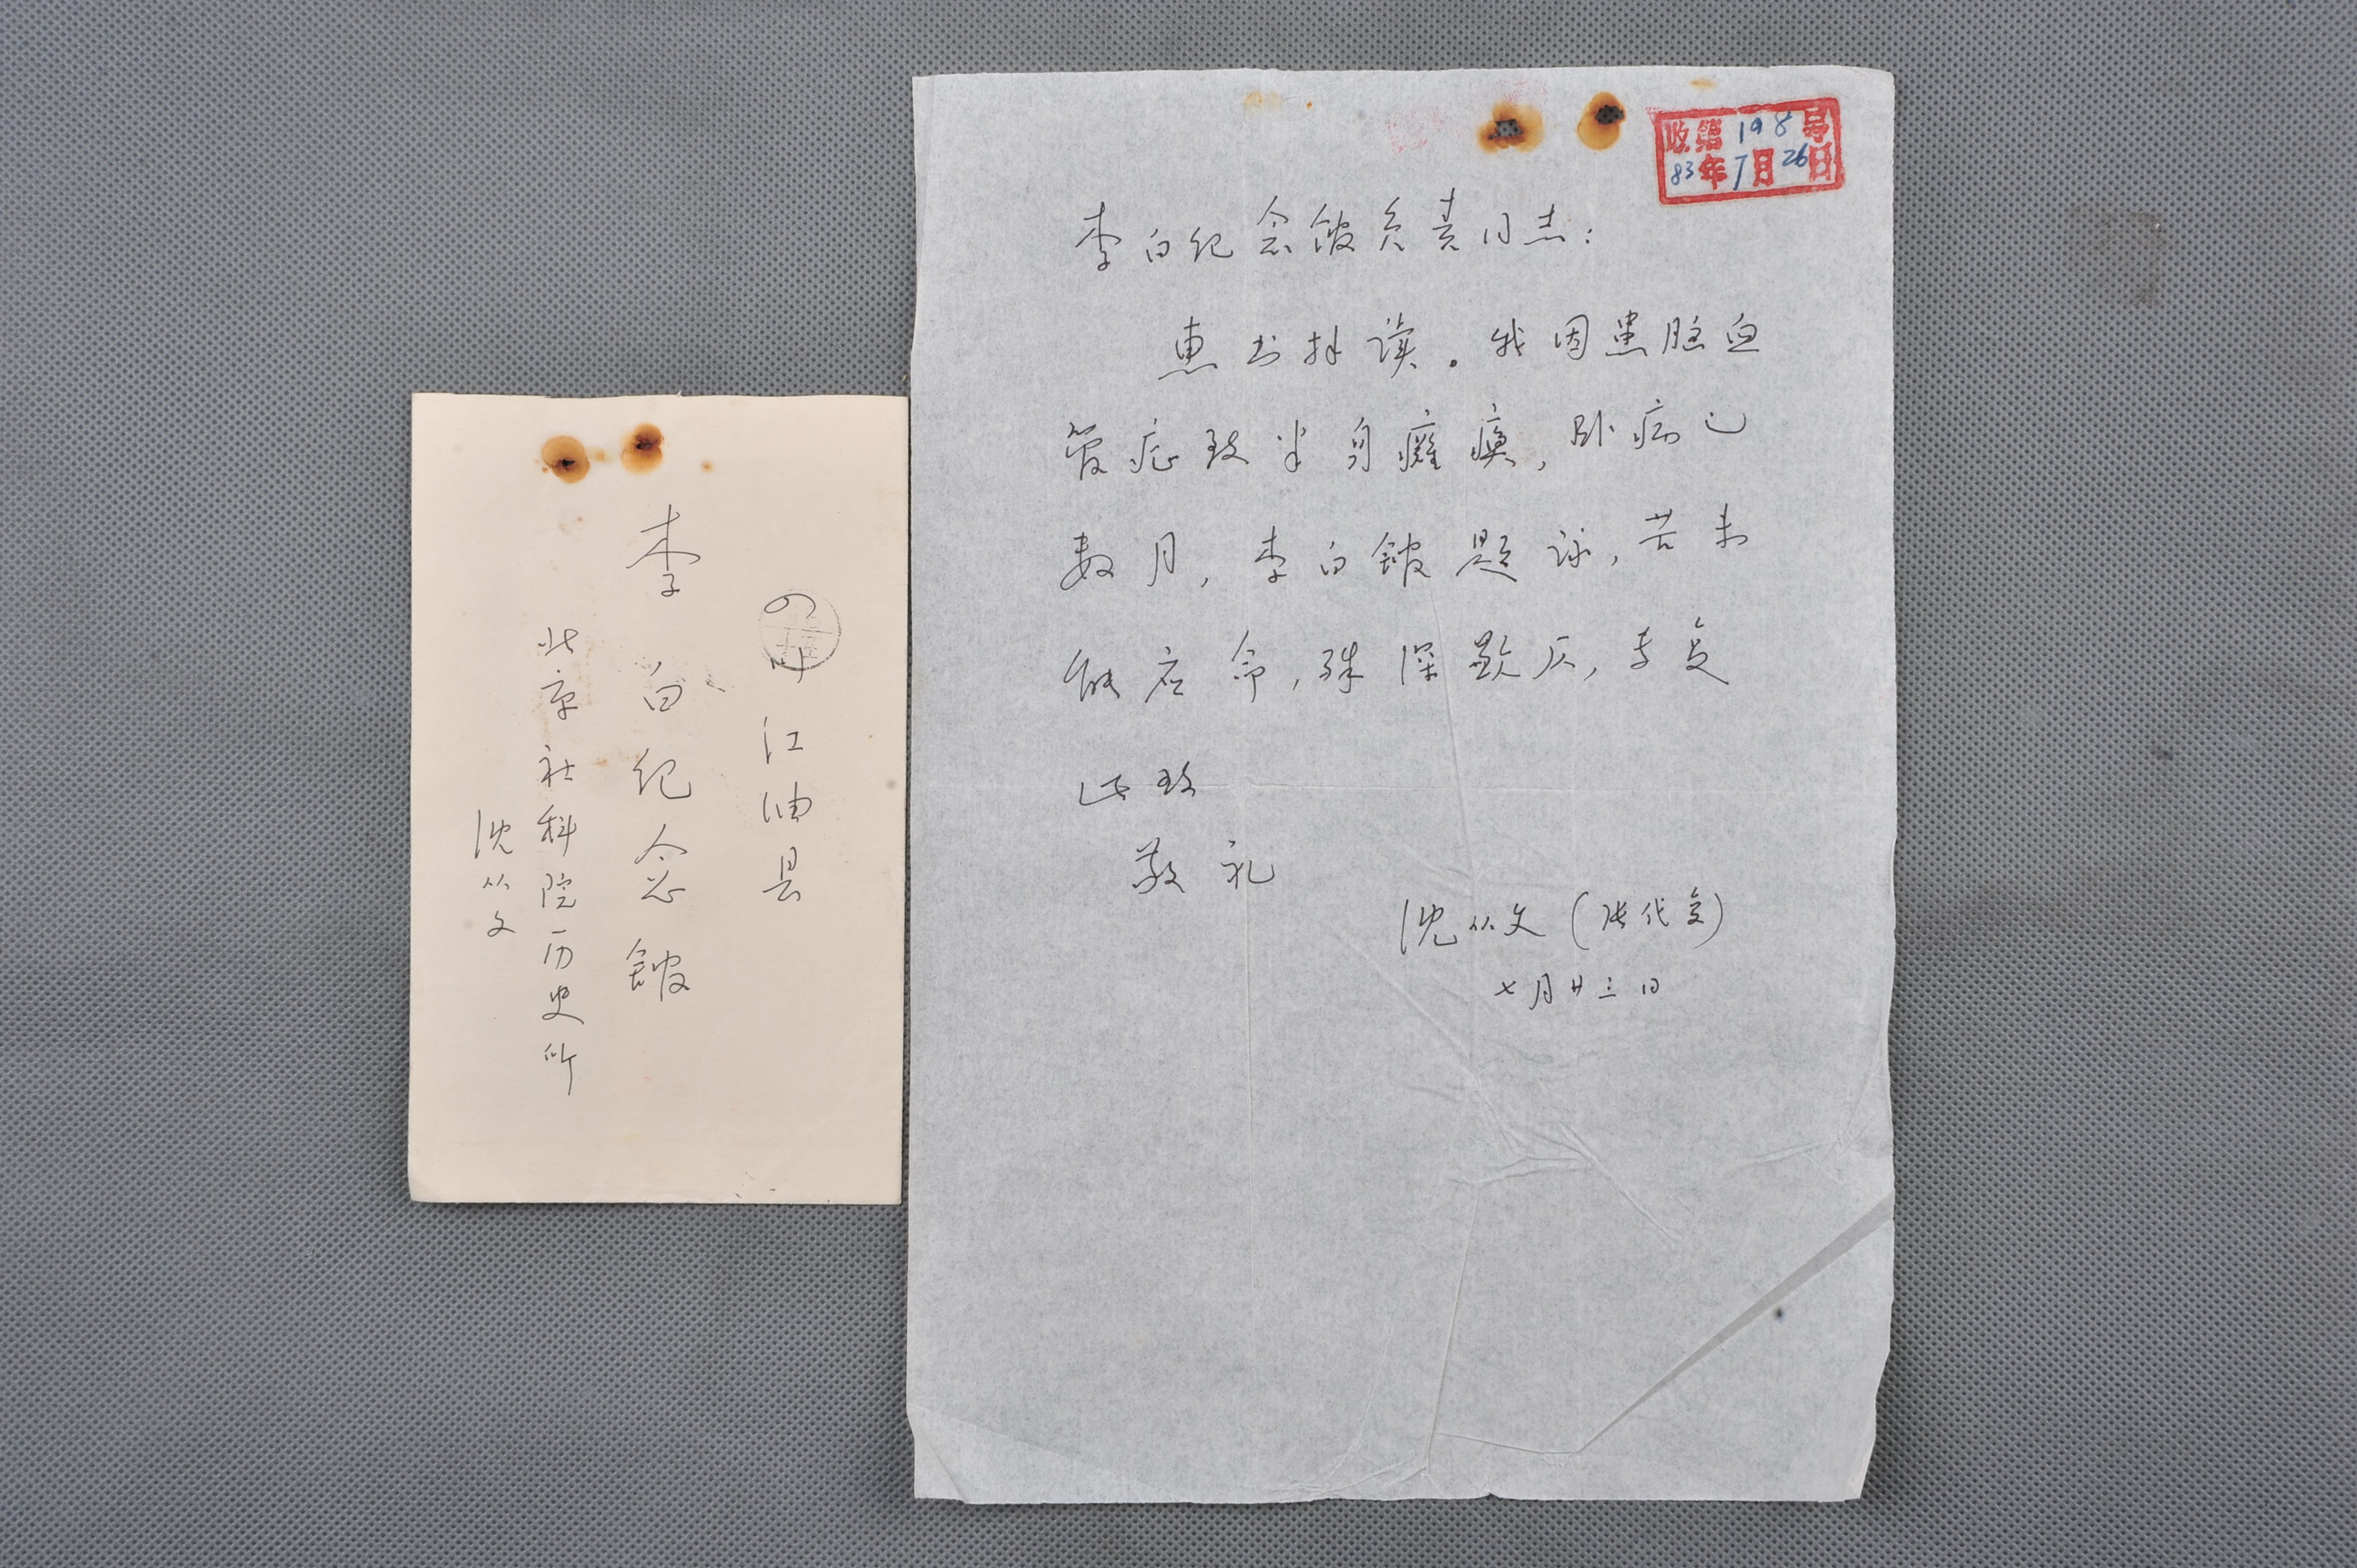 四川江油县
李白纪念馆
北京社科院历史所
沈从文
收第198号
83年7月26日
李白纪念馆负责同志：
惠书拜读。我因患脑血
管症致半身瘫痪，卧病已
数月，李白馆题词，苦未
能应命，殊深歉仄，专复
此致
敬礼
沈从文（张代复）
七月廿三日